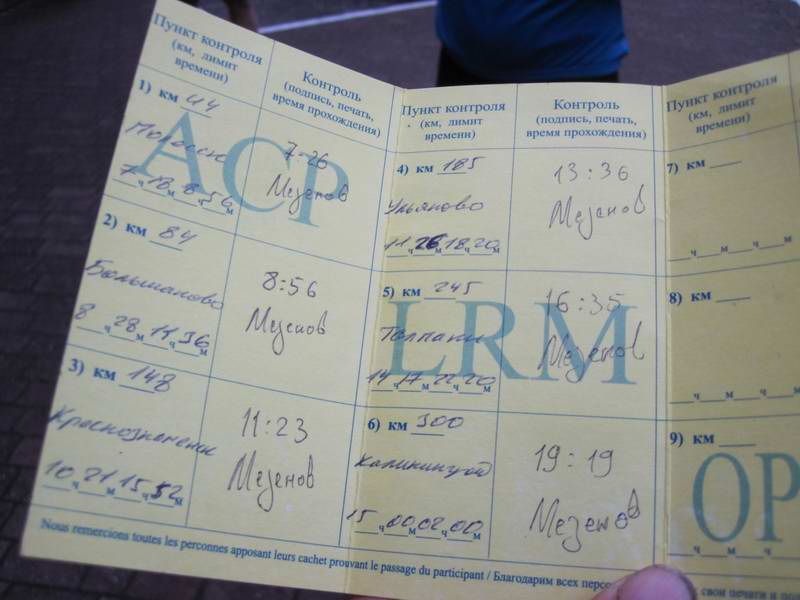 Пункт контроля
(км, лимит
времени)
Контроль
(подпись, печать,
время прохождения)
1) км 44
7 ч 18 м 8 ч 56 м
7-26
Мезенов
ACP
2) км 84
Большаково
8 ч 28 м 11 ч 36 м
8:56
Мезенов
3) км 148
Краснознаменск
10 ч 21 м 15 ч 52 м
11:23
Мезенов
Пункт контроля
(км, лимит
времени)
Контроль
(подпись, печать,
время прохождения)
4) км 185
Ульяново
11 ч 26 м 18 ч 20 м
13:36
Мезенов
5) км 245
14 ч 17 м 22 ч 20 м
16:35
Мезенов
LRM
6) км 300
15 ч 00 м 02 ч 00 м
19:19
Мезенов
Пункт контроля
(км, лимит
времени)
7) км
ч м ч м
8) км
ч м ч м
9) км
ч м ч
OP
Nous remercions toutes les perconnes apposant leurs cachet prouvant le passage du participant / Благодарим всех свои печати и по